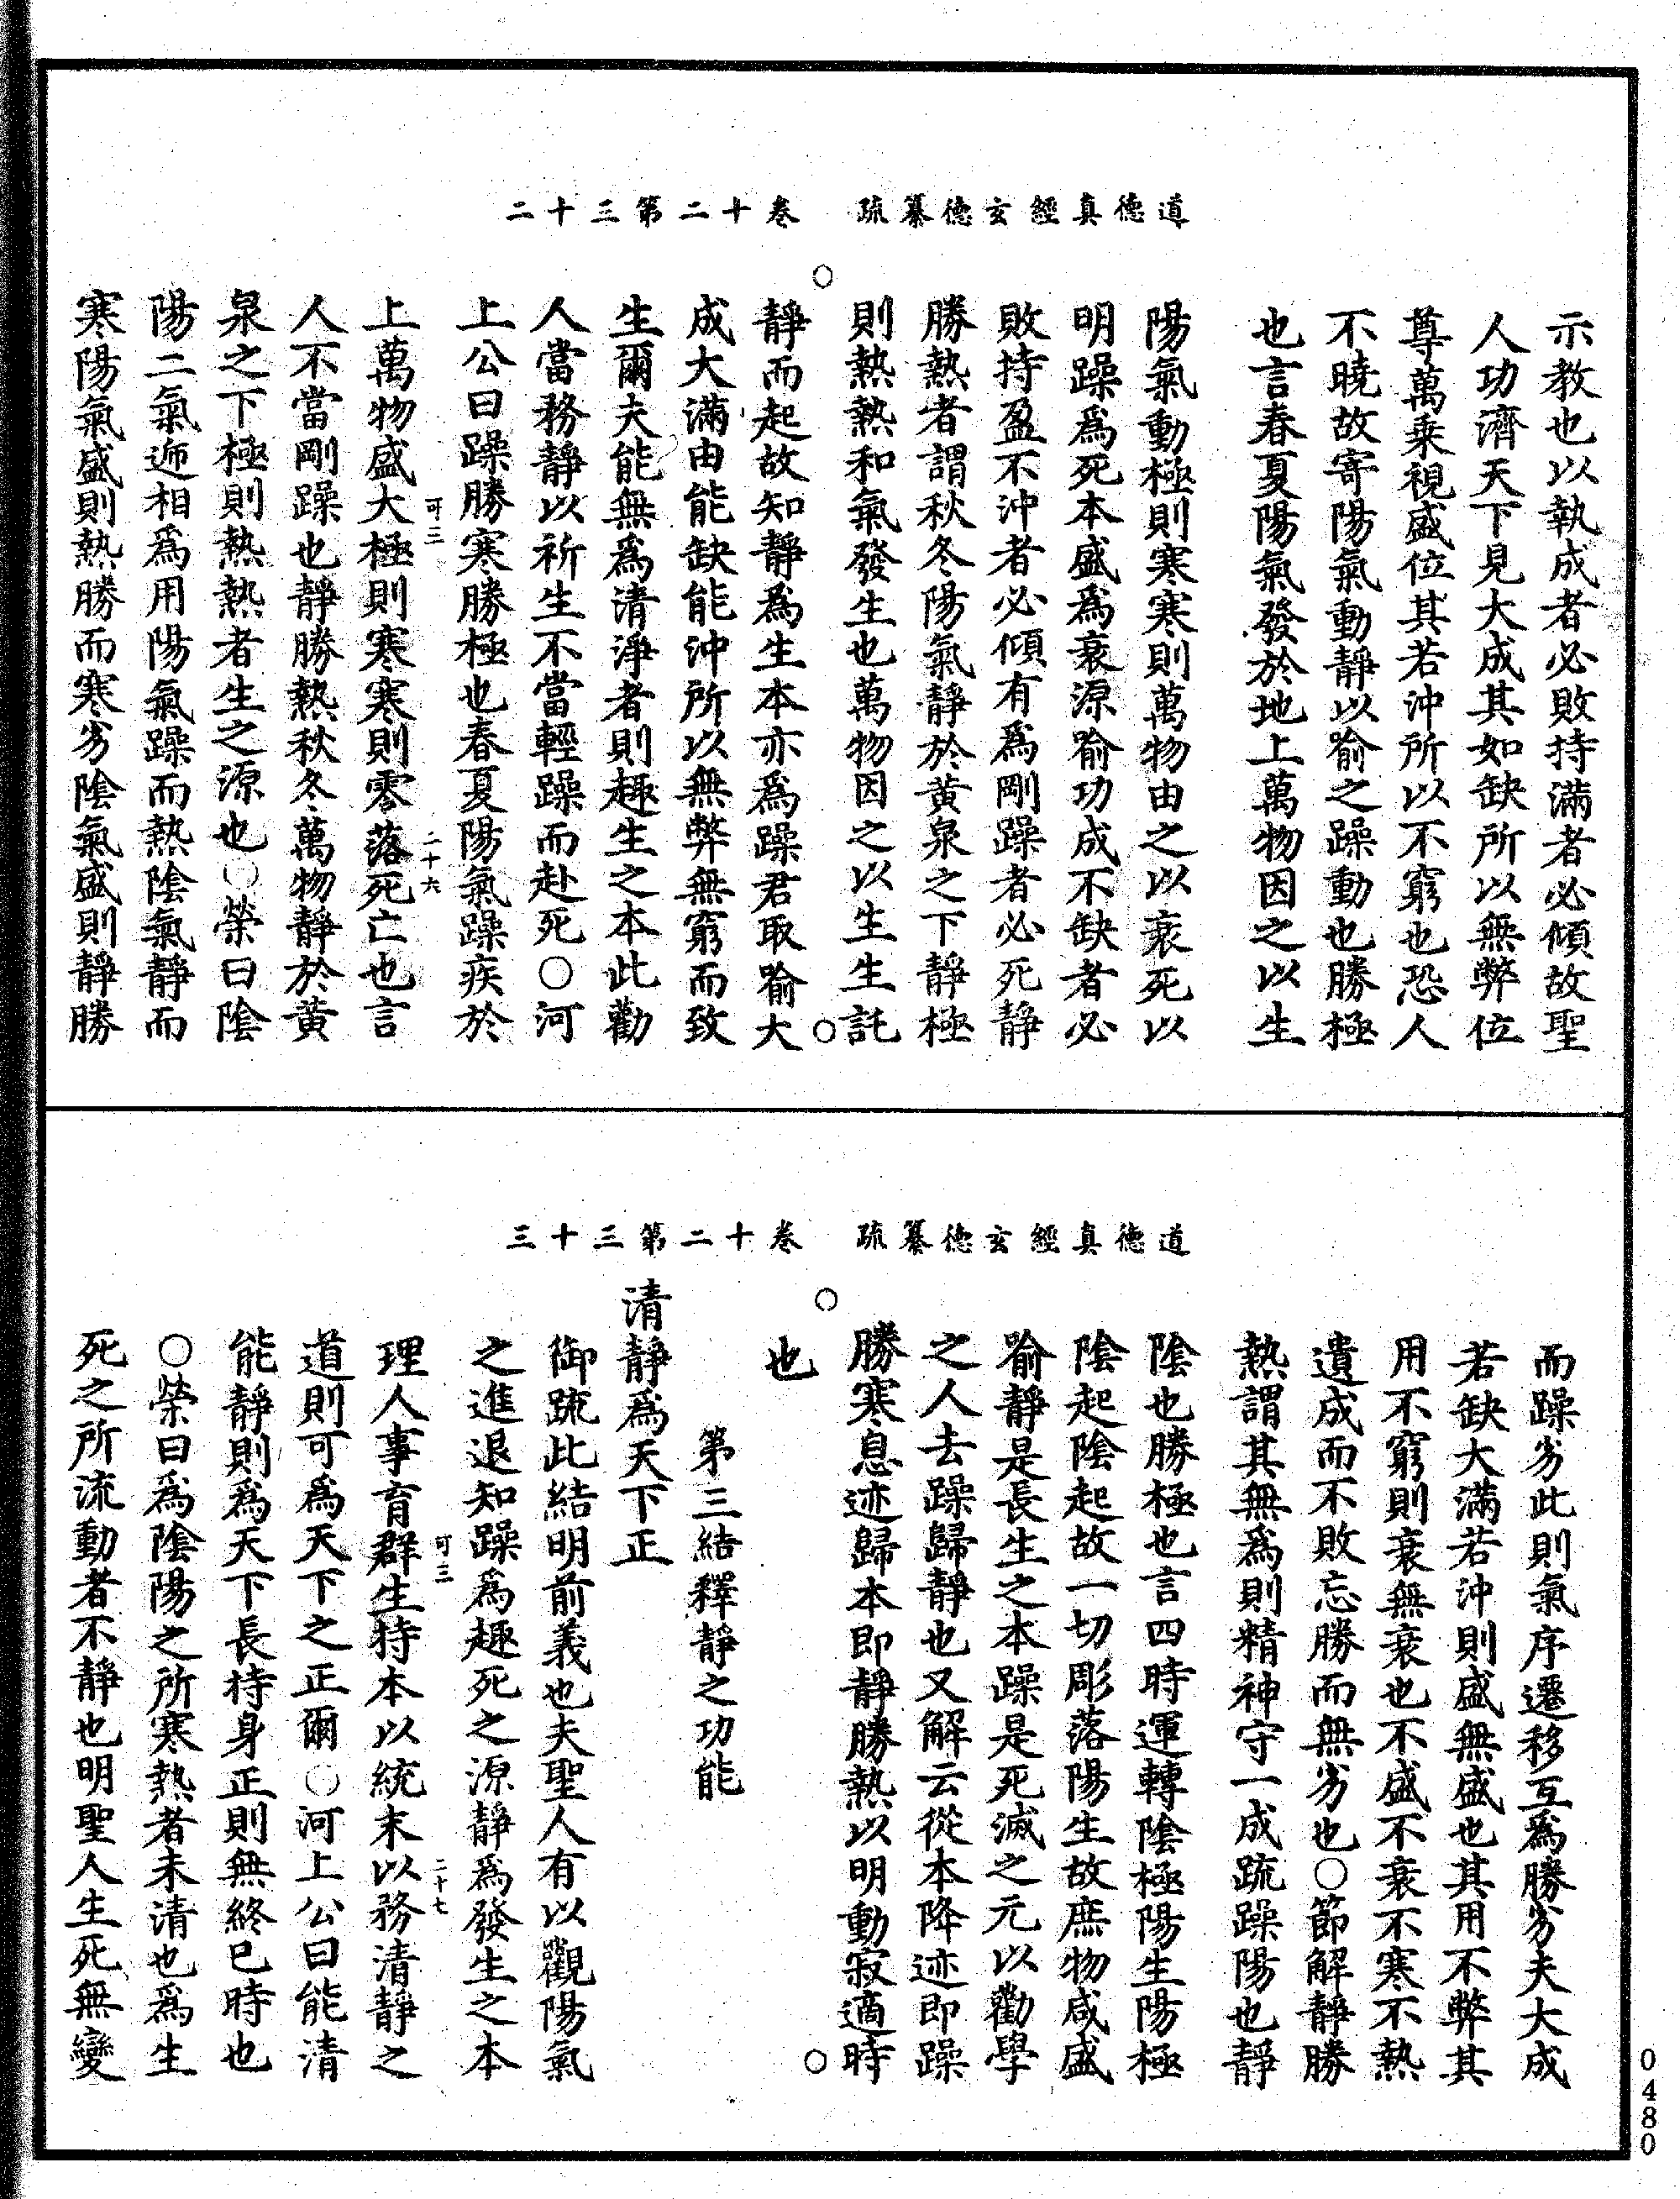 道德真經玄德纂疏　卷十二第三十二
示教也以執成者必敗持滿者必傾故聖
人功濟天下見大成其如缺所以無弊位
尊萬乘視盛位其若沖所以不窮也恐人
不曉故寄陽氣動靜以喻之躁動也勝極
也言春夏陽氣發於地上萬物因之以生
陽氣動極則寒寒則萬物由之以衰死以
明躁爲死本盛爲衰源喻功成不缺者必
敗持盈不沖者必傾有爲剛躁者必死静
勝熱者謂秋冬陽氣静於黃泉之下静極
則熱熱和氣發生也萬物因之以生生託
静而起故知静爲生本亦爲躁君取喻大
成大滿由能缺能沖所以無弊無窮而致
生爾夫能無爲清淨者則趣生之本此勸
人當務静以祈生不當輕躁而赴死○河
上公曰躁勝寒勝極也春夏陽氣躁疾於
可三　二十六
上萬物盛大極則寒寒則零落死亡也言
人不當剛躁也靜勝熱秋冬萬物靜於黃
泉之下極則熱熱者生之源也○榮曰陰
陽二氣遞相爲用陽氣躁而熱陰氣靜而
寒陽氣盛則熱勝而寒劣陰氣盛則靜勝
道德真經玄德纂疏　卷十二第三十三
而躁劣此則氣序遷移互爲勝劣夫大成
若缺大滿若沖則盛無盛也其用不弊其
用不窮則衰無衰也不盛不衰不寒不熱
遺成而不敗忘勝而無劣也○節解靜勝
熱謂其無爲則精神守一成疏躁陽也靜
陰也勝極也言四時運轉陰極陽生陽極
陰起陰起故一切彫落陽生故庶物咸盛
喻靜是長生之本躁是死滅之元以勸學
之人去躁歸靜也又解云從本降迹即躁
勝寒息迹歸本即靜勝熱以明動寂適時
也
第三結釋靜之功能
清靜爲天下正
御疏此結明前義也夫聖人有以觀陽氣
之進退知躁爲趣死之源靜爲發生之本
可三　二十七
理人事育群生持本以統末以務清靜之
道則可爲天下之正爾○河上公曰能清
能靜則爲天下長持身正則無終已時也
○榮曰爲陰陽之所寒熱者未清也爲生
死之所流動者不靜也明聖人生死無變
0480